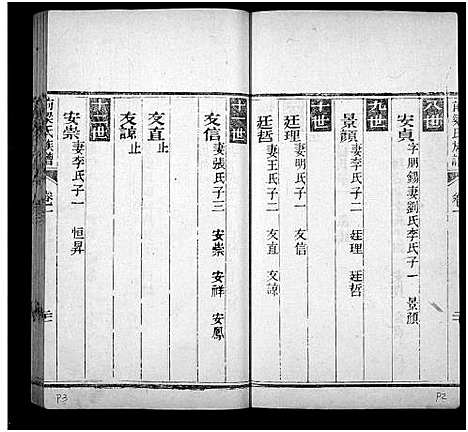 八世
安貞 字朋錫妻劉氏李氏子一 景顏
九世
景顏 妻李氏子二 廷理 廷哲
十世
廷理 妻明氏子一 友信
廷哲 妻王氏子二 友直 友諒
十一世
友信 妻張氏子三 安崇 安祥 安鳳
友直 止
友諒 止
十二世
安崇 妻李氏子一 恒昇
梁氏族譜 卷一
P3
P2